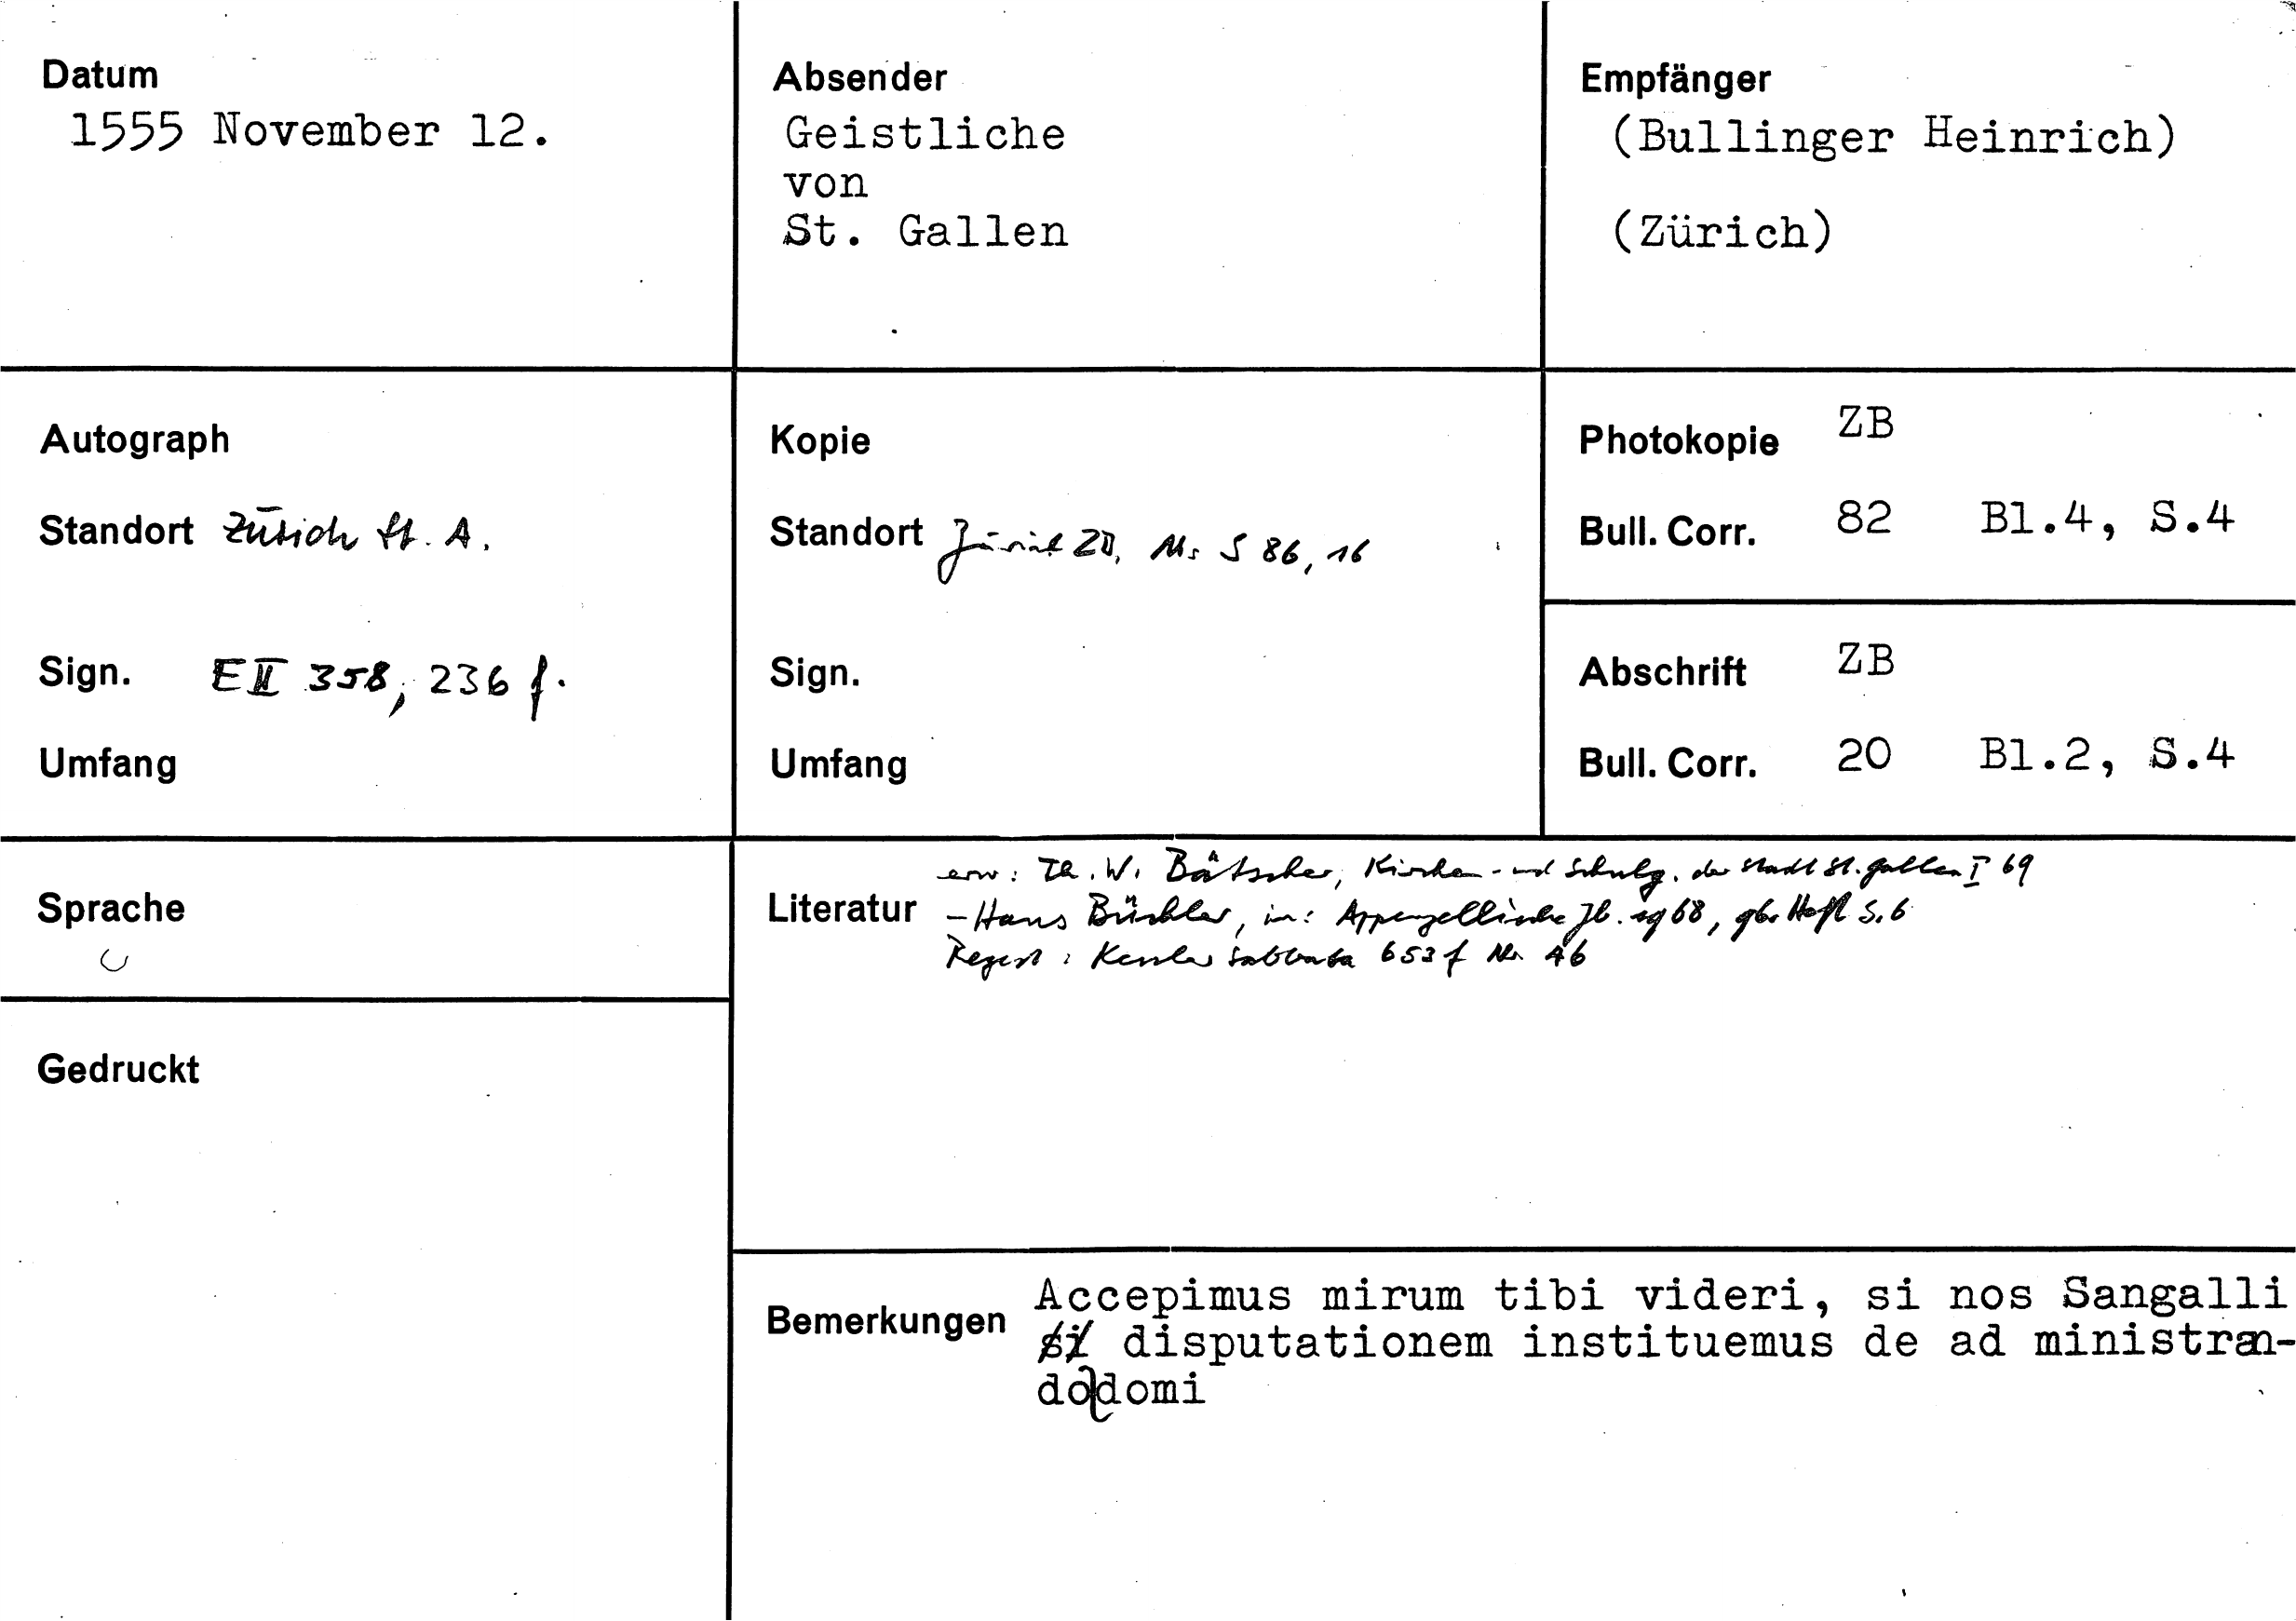 Datum
1555 November 12.
Absender
Geistliche
von
St. Gallen
Empfänger
(Bullinger Heinrich)
(Zürich)
Autograph
Standort Zürich St. A.
Sign. E II 358, 236 f.
Umfang
Kopie
Standort Zürich ZB, Ms S 86, 16
Sign.
Umfang
Photokopie ZB
Bull. Corr. 82 Bl.4, S.4
Abschrift ZB
Bull. Corr. 20 Bl.2, S.4
Sprache
Gedruckt
Literatur
erw: Th. W. Bätscher, Kirchen- und Schulg. der Stadt St. Gallen I 69
- Hans Büchler, in: Appenzellische Jb. 1968, Heft S. 6
Regest: Kessler Sabbata 653 f Nr. 46
Bemerkungen
Accepimus mirum tibi videri, si nos Sangalli
si disputationem instituemus de ad ministran-
do domi